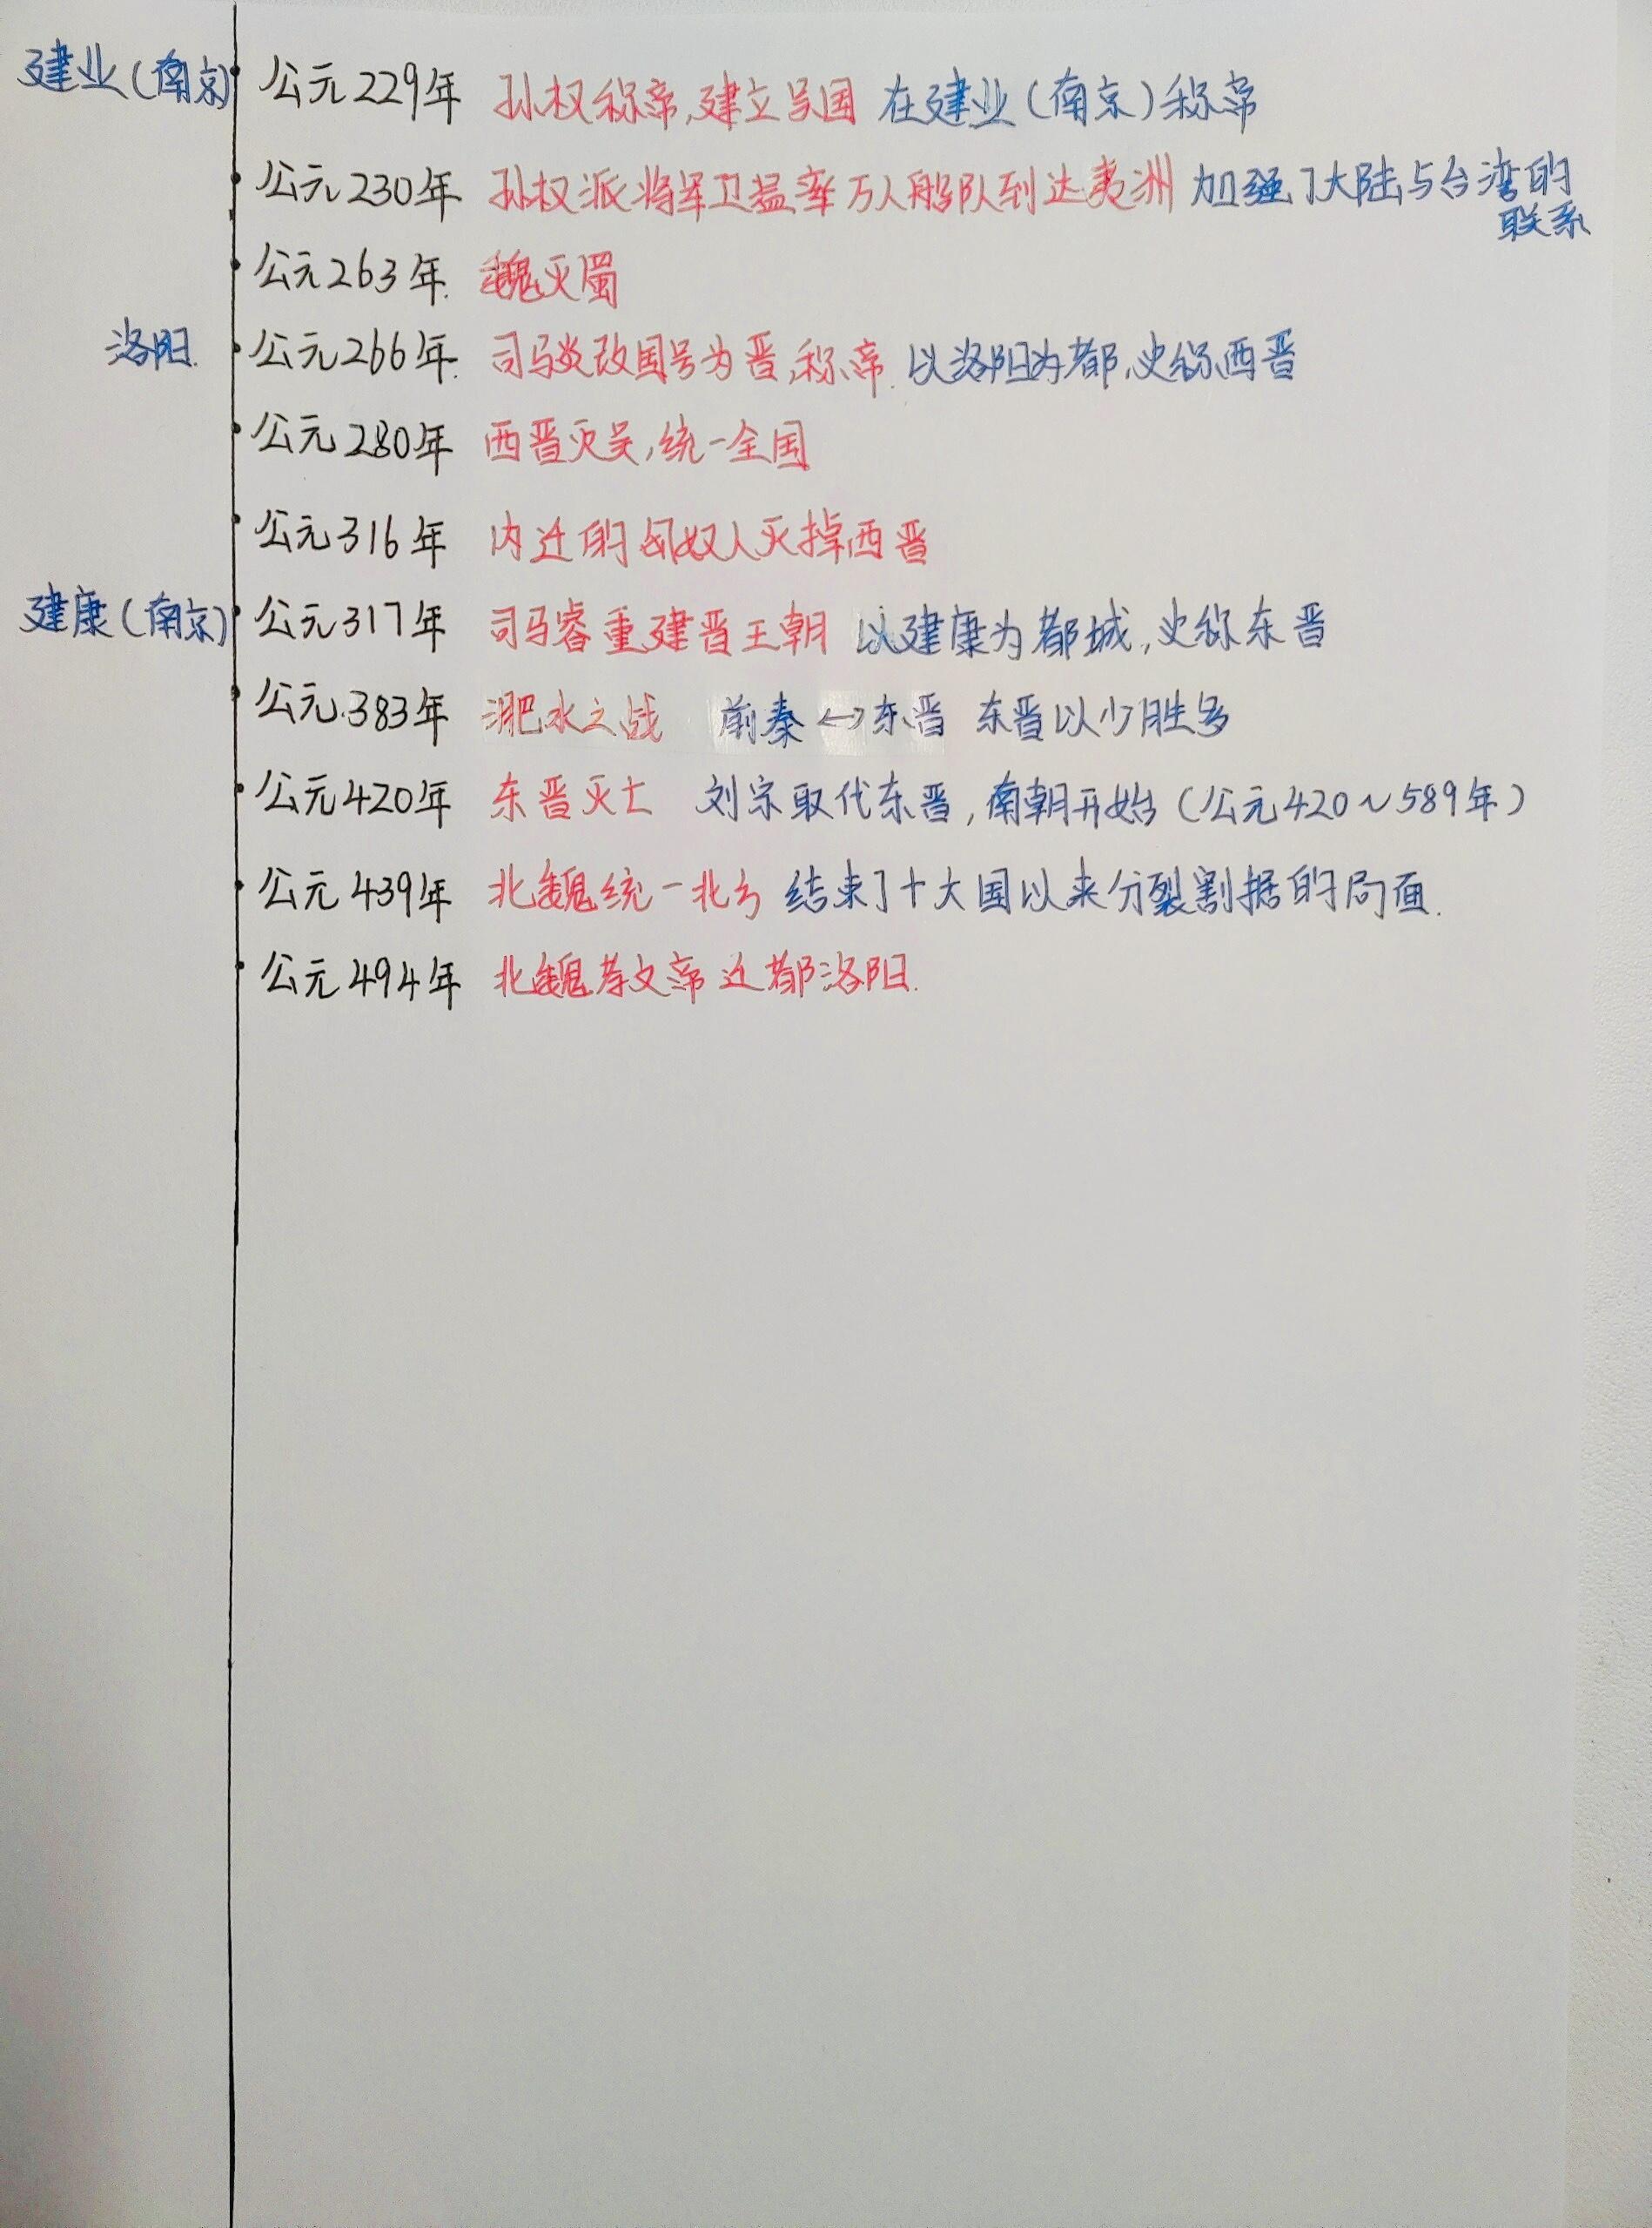 建业(南京) 公元229年 孙权称帝,建立吴国 在建业(南京)称帝
公元230年 孙权派将军卫温率万人船队到达夷洲 加强了大陆与台湾的
联系
公元263年. 魏灭蜀
洛阳. 公元266年. 司马炎改国号为晋,称帝. 以洛阳为都,史称西晋
公元280年 西晋灭吴,统一全国
公元316年 内迁的匈奴人灭掉西晋
建康(南京) 公元317年 司马睿重建晋王朝 以建康为都城,史称东晋
公元.383年 淝水之战 前秦↔东晋 东晋以少胜多
公元420年 东晋灭亡 刘宋取代东晋,南朝开始(公元420~589年)
公元439年 北魏统一北方 结束了十六国以来分裂割据的局面.
公元494年 北魏孝文帝迁都洛阳.